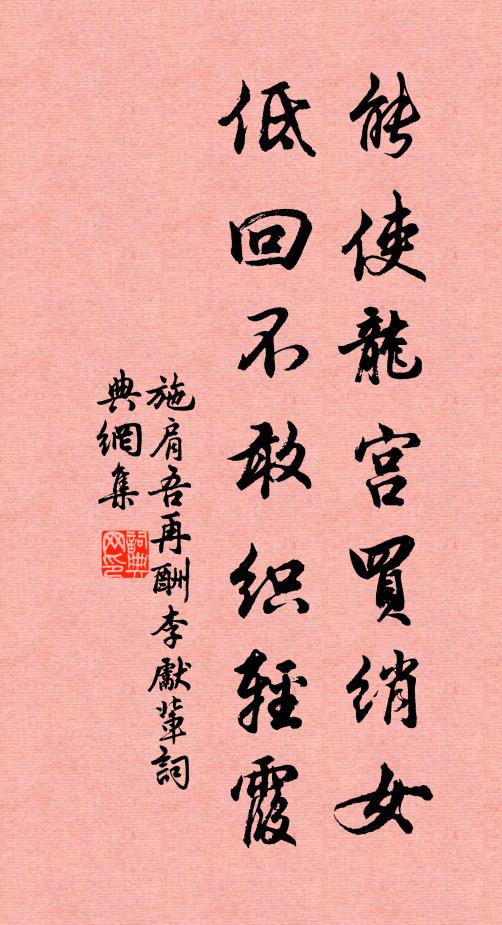 能使龍宮買綃女
低回不敢織輕霞
施肩吾再酬李獻輩詞
典網集
詞典
网印